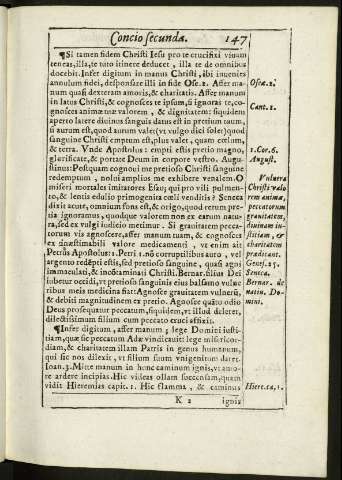 Concio secunda. 147
¶Si tamen fidem Christi Iesu pro te crucifixi vivam
teneas, illa, te tuto itinere deducet, illa te de omnibus
docebit. Infer digitum in manus Christi, ibi invenies
annulum fidei, desponsare illi in fide Ose. 2. Affer ma-
num quasi dexteram amoris, & charitatis. Affer manum
in latus Christi, & cognosces te ipsum, si ignoras te, co-
gnosces animæ tuæ valorem, & dignitatem: siquidem
aperto latere divinus sanguis datus est in pretium tuum,
si aurum est, quod aurum valet (vt vulgo dici solet) quod
sanguine Christi emptum est, plus valet, quam cœlum,
& terra. Vnde Apostolus: empti estis pretio magno,
glorificate, & portate Deum in corpore vestro. Augu-
stinus: Postquam cognoui me pretioso Christi sanguine
redemptum, nolui amplius me exhibere venalem. O
miseri mortales imitatores Esau, qui pro vili pulmen-
to, & lentis edulio primogenita cœli venditis? Seneca
dixit acute, omnium fons est, & origo, quod rerum pre-
tia ignoramus, quodque valorem non ex earum natu-
ra, sed ex vulgi iudicio metimur. Si gravitatem pecca-
torum vis agnoscere, affer manum tuam, & cognosces
ex inæstimabili valore medicamenti, vt enim ait
Petrus Apostolus: 1. Petri 1. nō corruptibilis auro, vel
argento redépti estis, sed pretioso sanguine, quasi agni
immaculati, & incōtaminati Christi. Bernar. filius Dei
iubetur occidi, vt pretioso sanguinis eius balsamo vulne-
ribus meis medicina fiat: Agnosce gravitatem vulneris,
& debiti magnitudinem ex pretio. Agnosce quāto odio
Deus prosequatur peccatum, siquidem, vt illud deleret,
dilectissimum filium cum peccato cruci affixit.
¶Infer digitum, affer manum, & lege Domini iusti-
tiam, quæ sic peccatum Adæ vindicavit: lege misericor-
diam, & charitatem illam Patris in genus humanum,
qui sic nos dilexit, vt filium suum vnigenitum daret
Ioan. 3. Mitte manum in hunc caminum ignis, vt amo-
re ardere incipias. Hic videas ollam succensam, quam
vidit Hieremias capit. 1. Hic flamma, & caminus
K 2 ignis
Oseæ. 2.
Cant. 1.
1. Cor. 6.
August.
Vulnera
Christi valo
rem animæ,
peccatorum
gravitatem,
divinam iu-
stitiam, et
charitatem
prædicant.
Genes. 25.
Seneca.
Bernar. de
nativ. Do-
mini.
Hiere. ca, 1.